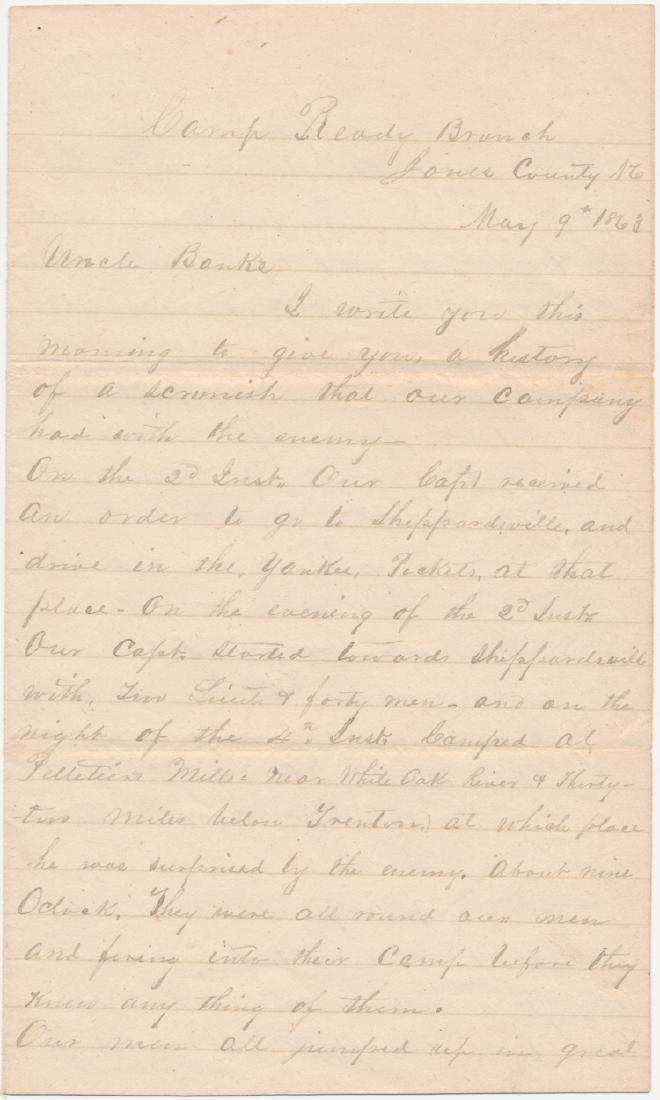 Camp Ready Branch
Jones County NC
May 9th 1863
Uncle Banks
I write you this
morning to give you, a history
of a scrmish that our company
had with the enemy—
On the 2d Inst. Our Capt received
an order to go to Sheppardsville, and
drive in the, Yankee, Pickets, at that
place - On the evening of the 2d Inst.
Our Capt. started towards Sheppardsville
with, Two Lieuts & forty men - and on the
night of the 4th. Inst. Camped at
Pelletiers Mills: near White Oak River & Thirty-
two miles below Trenton.) at which place
he was surprised by the enemy. About nine
Oclock. They were all round our men
and fireing into their Camp before they
knew any thing of them.
Our men all jumped up in great